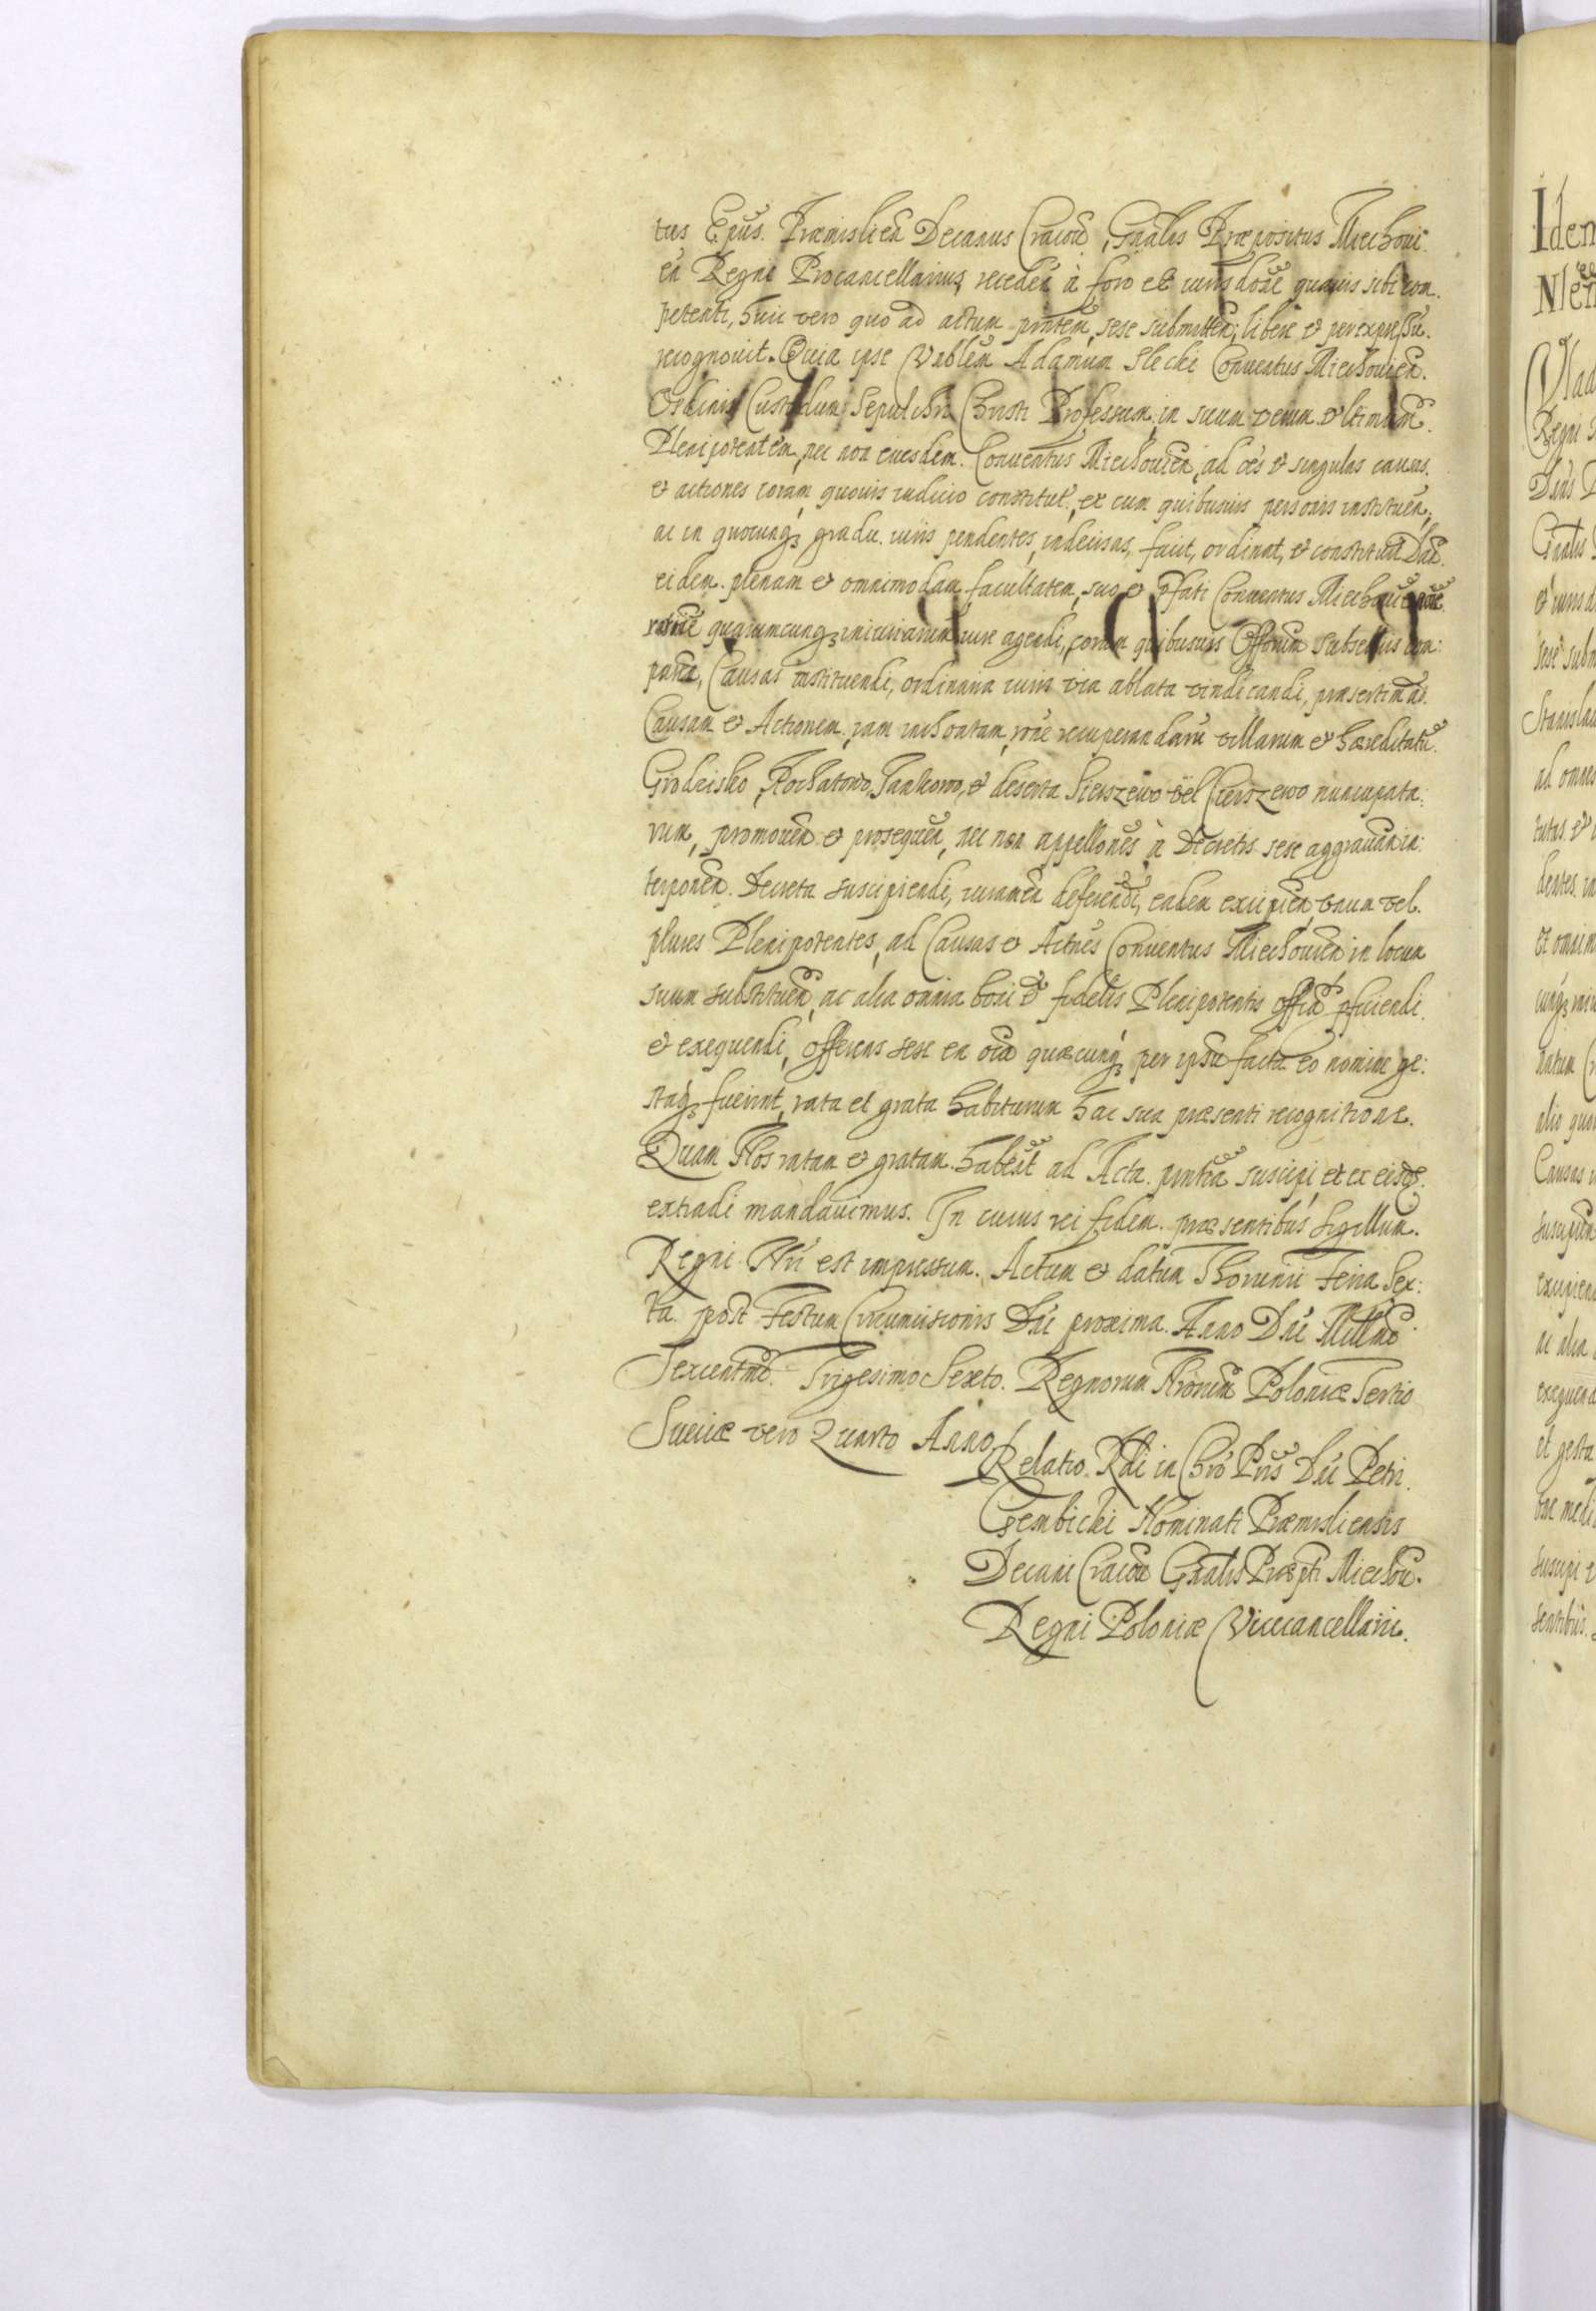 tus Epus. Præmislien Decanus Cracou, Gnalis Præpositus Miechoui
en Regni Procancellarius, receden à foro et iurisdone quauis sibi com.
petenti, huic vero quo ad actum pntem, sese submitten; libere et per expressu.
recognouit. Quia ipse Vnblem Adamum Slecki Conuentus Miechouien.
Ordinis Custodum Sepulchri Christi Professum, in suum verum et ltimum.
Plenipotentem, nec non eiusdem. Conuentus Miechouien, ad oes et singulas causas.
et actiones coram, quouis iudicio constitut, ex cum quibusuis personis instituen,
ac in quocunq gradu. iuris pendentes, indecisas, facit, ordinat, et constituit Dan.
eidem. plenam et omnimodam facultatem, suo et pfati Conuentus Miechouien noie
rone quarumcunq iniuriarum iure agendi, coram quibusuis Officium subsellijs com:
paren, Causas instituendi, ordinaria iuris via ablata vindicandi, præsertim as.
Causam et Actionem iam inchoatam, rone recuperandaru villarum et hæreditatu.
Grodzisko, Tochatowo, Jankowo, et deserta Sierszewo vel Cierszewo nuncupata:
rum, promouen et prosequen, nec non appellones à Decretis sese aggrauan in:
terponen. Decreta suscipiendi, iuramen deferendi, eadem excipien, vnum vel.
plures Plenipotentes, ad Causas et Actnes Conuentus Miechouien in locum
suum substituen, ac alia omnia boni et fidelis Plenipotentis offia pficiendi.
et exequendi, Offerens sese ea oia quæcunq per ipsu facta eo nomine ge:
staq fuerint, rata et grata habiturum hac sua præsenti recognitione.
Quam Nos ratam et gratam. habeut ad Acta. pntia suscipi, et ex eisde.
extradi mandauimus. In cuius rei fidem. præsentibus Sigillum.
Regni Nri est impressum. Actum et datum Thorunij Feria Sex:
ta. post Festum Circumcisionis Dni proxima. Anno Dni Millmo
Sexcentmo. Trigesimo Sexto. Regnorum Nrorum Poloniæ Tertio
Sueciæ vero Quarto Anno
Relatio. Rdi in Chro Pris Dni Petri.
Gembicki Nominati Præmisliensis
Decani Cracou Gnalis Præpti Miechou.
Regni Poloniæ Vicecancellarii.
Iden
Vlad
Regni